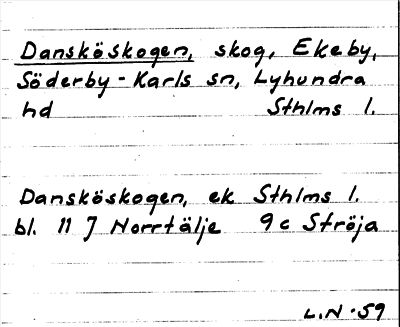 Dansköskogen, skog, Ekeby,
Söderby-Karls sn, Lyhundra
hd Sthlms l.
Dansköskogen, ek Sthlms l.
bl. 11 J Norrtälje 9 c Ströja
L.N.59